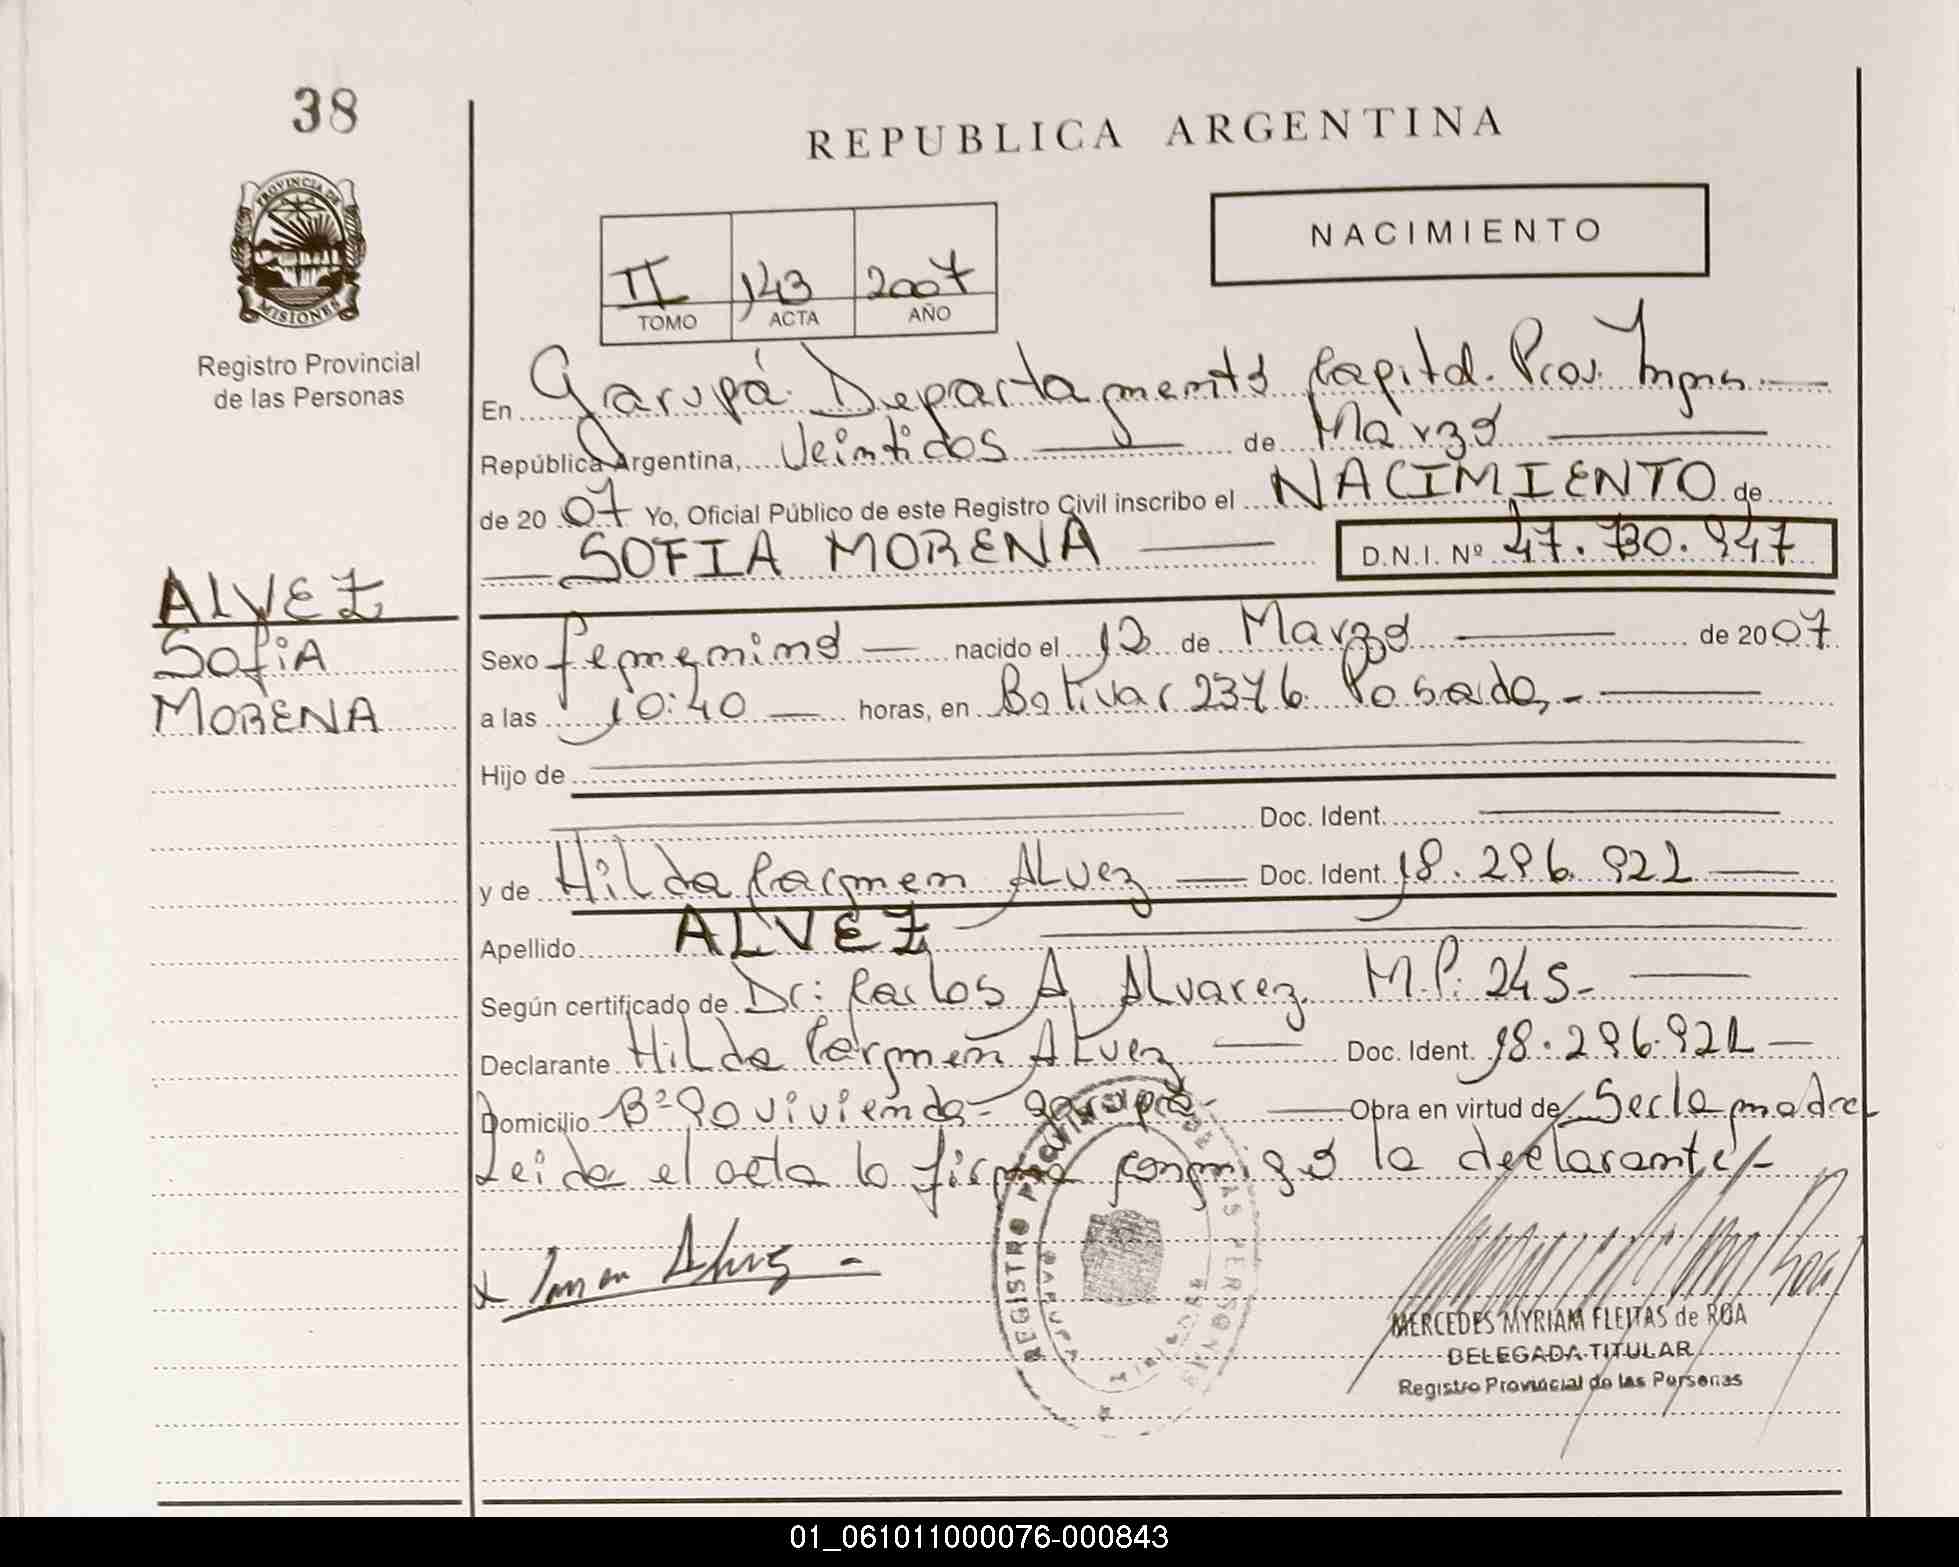 38
REPUBLICA ARGENTINA
PROVINCIA DE
MISIONES
NACIMIENTO
II 143 2007
TOMO ACTA AÑO
Registro Provincial
de las Personas
En Garupá Departamento Capital. Prov. Mnes.
República Argentina, Veintidos de Marzo
de 2007 Yo, Oficial Público de este Registro Civil inscribo el NACIMIENTO de
SOFIA MORENA D.N.I. Nº 47.730.947
ALVEZ
SofiA
MORENA
Sexo femenino nacido el 12 de Marzo de 2007
a las 10:40 horas, en Bolivar 2376 Posadas
Hijo de
Doc. Ident.
y de Hilda Carmen ALvez Doc. Ident. 18.296.922
Apellido ALVEZ
Según certificado de Dr: Carlos A. ALvarez. M.P. 245-
Declarante Hilda Carmen ALvez Doc. Ident. 18.296.922
Domicilio Bº 90 vivienda- garupá- Obra en virtud de Ser la madre
Leida el acta la firma conmigo la declarante-
Alvez
REGISTRO PROVINCIAL DE LAS PERSONAS
GARUPA
MERCEDES MYRIAM FLEITAS de ROA
DELEGADA TITULAR
Registro Provincial de las Personas
01_061011000076-000843